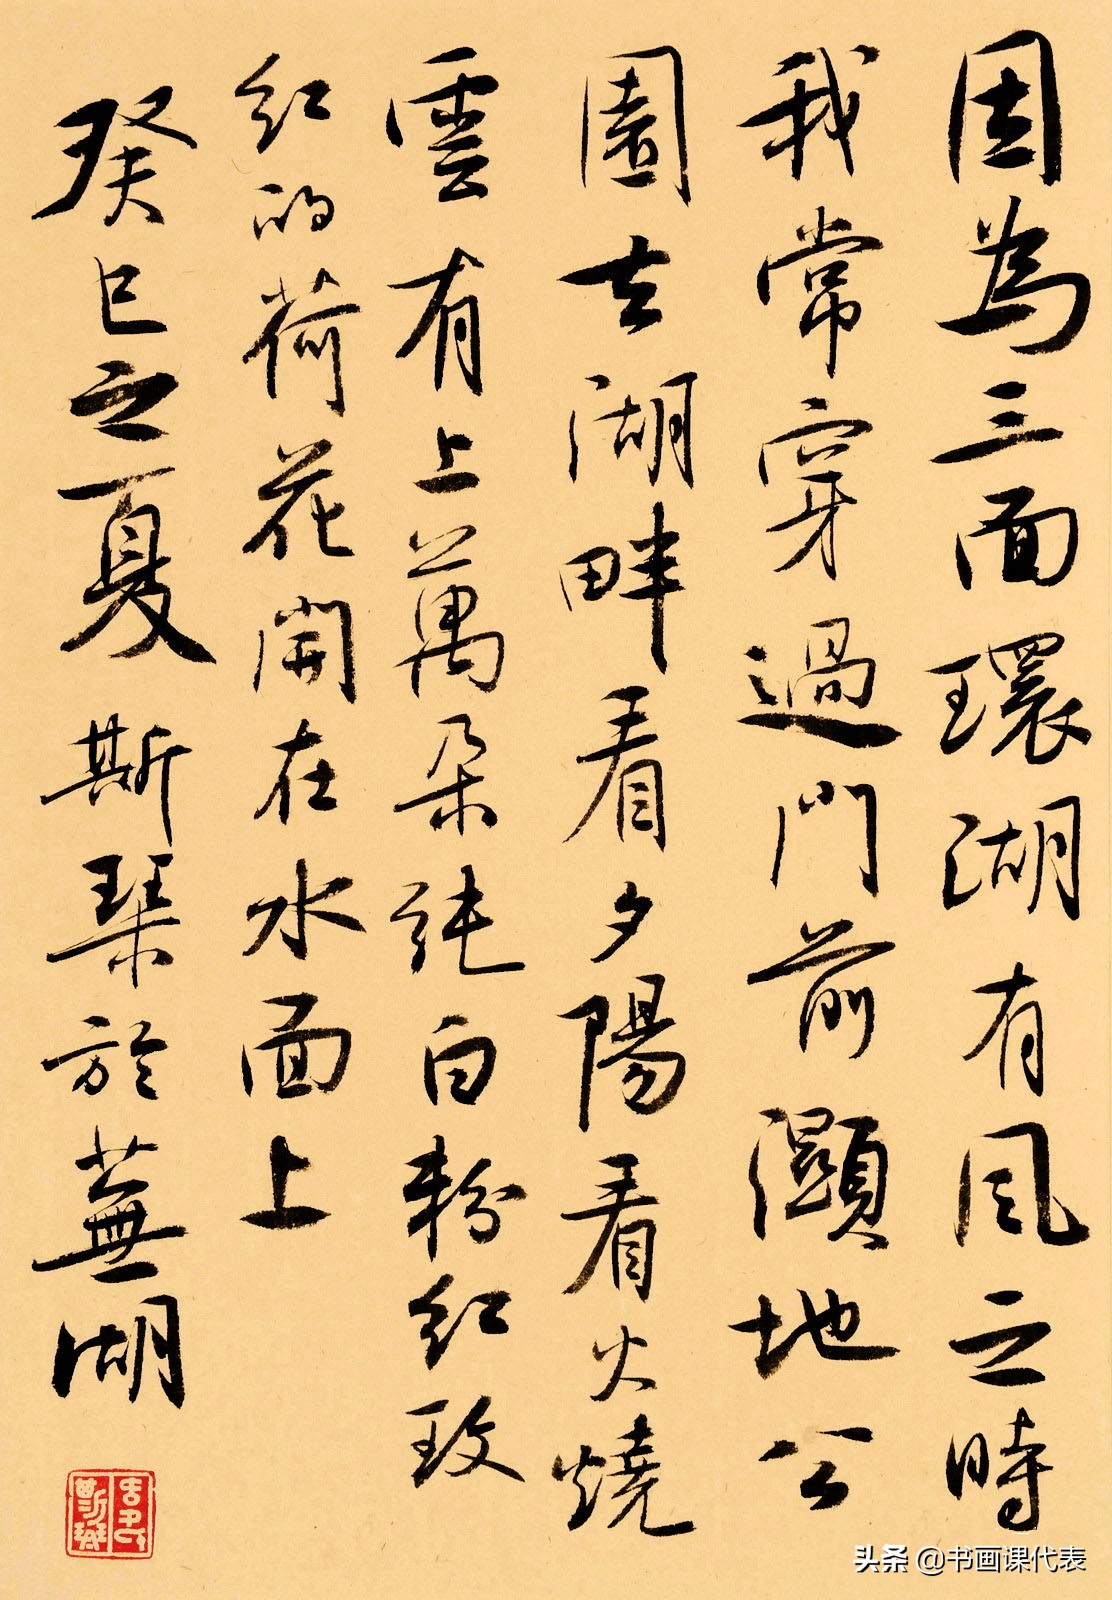 因為三面環湖有風之時
我常穿過門前灝地公
園去湖畔看夕陽看火燒
雲有上萬朵純白粉紅玫
紅的荷花開在水面上
癸巳之夏斯琹於蕪湖
头条 @书画课代表